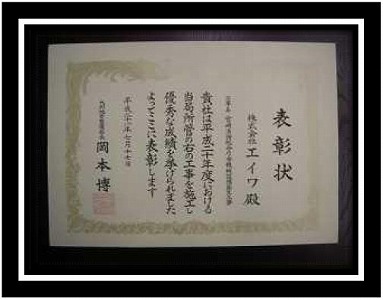 表彰状
株式会社 エイワ 殿
貴社は平成二十年度における
当局所管の右の工事を施工し
優秀な成績を挙げられました
よってここに表彰します
平成二十一年七月十七日
岡本 博